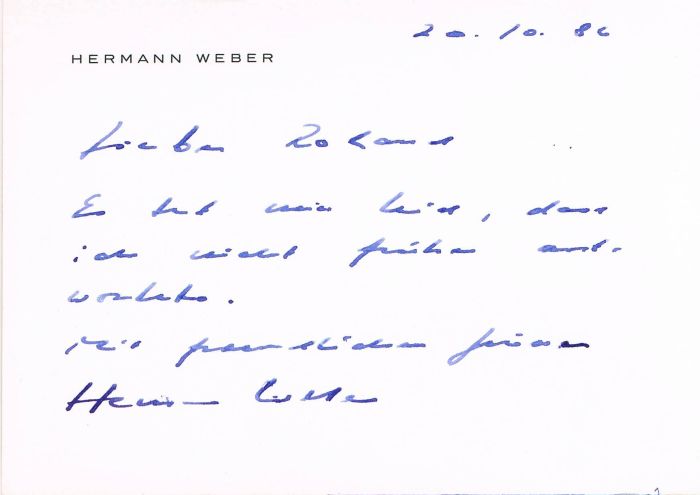 20.10.86
HERMANN WEBER
Lieber Roland
Es tut mir leid, dass
ich nicht früher ant-
wortete.
Mit freundlichen Grüssen
Hermann Weber